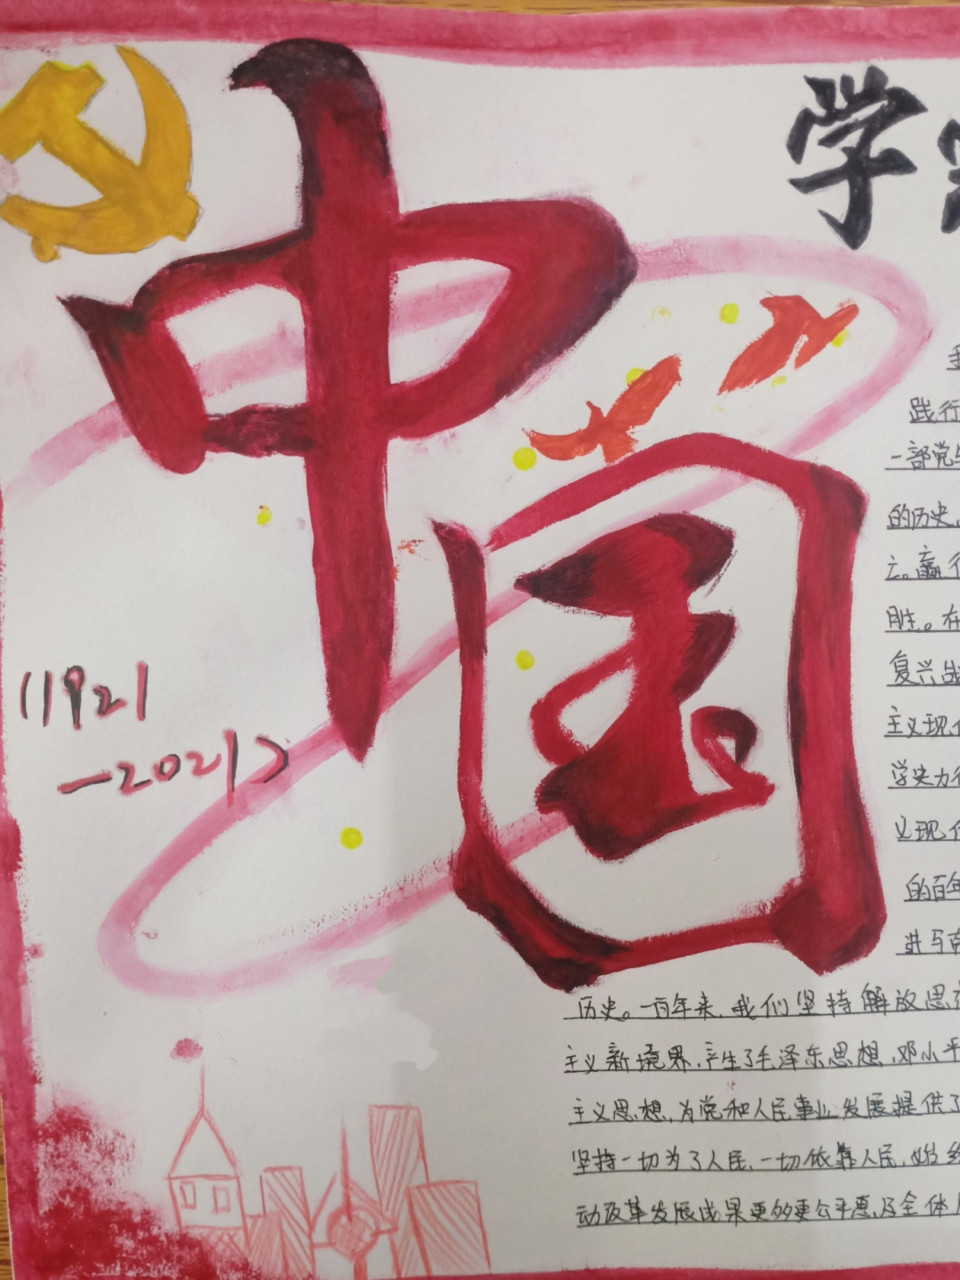 中国
学
(1921
—2021)
践行
一部党与
的历史,
亡。赢得
胜。在
复兴战
主义现代
学史力行
义现代
的百年
进与奋
历史。一百年来,我们坚持解放思想
主义新境界,产生了毛泽东思想,邓小平
主义思想,为党和人民事业发展提供了
坚持一切为了人民,一切依靠人民,始终
动改革发展成果更多更公平惠及全体人